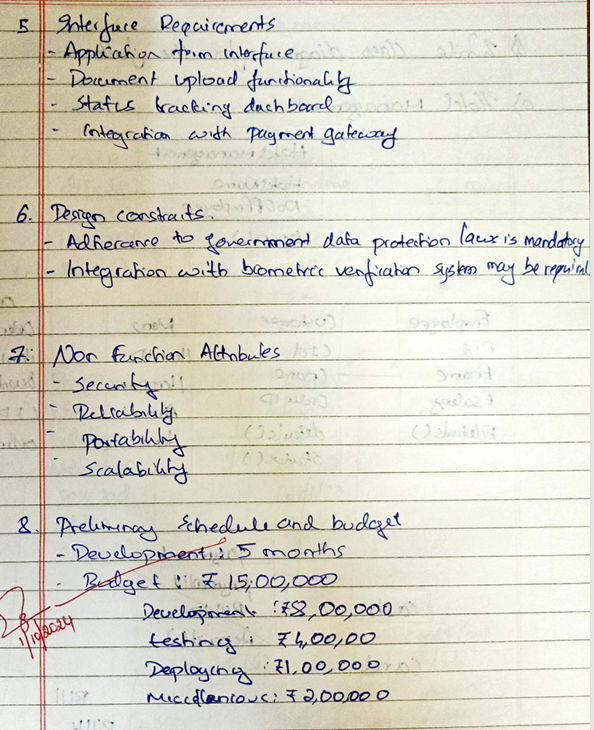 5. Interface Requirements
- Application form interface
- Document upload functionality
- Status tracking dashboard
- Integration with payment gateway
6. Design constraits.
- Adherance to government data protection laws is mandatory
- Integration with biometric verification system may be required
7. Non Function Attributes
- Security
- Reliability
- Portability
- Scalability
8. Preliminary Schedule and budget
- Development : 5 months
- Budget : ₹ 15,00,000
Development : ₹8,00,000
testing ₹4,00,00
Deploying : ₹1,00,000
Miscellanious : ₹ 2,00,000
1/10/2024